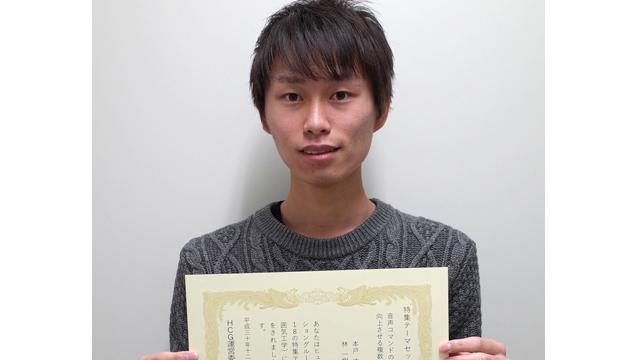 特集テーマセッ
音声コマンドの
向上させる複数
本戸
林 一
あなたはヒュ
ショングルー
18の特集
囲気工学）に
をされまし
す。
平成三十年十二
HCG運営委